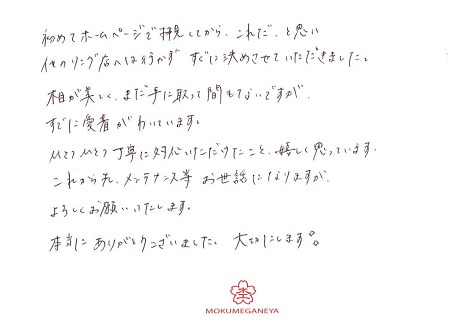 初めてホームページで拝見してから、これだ、と思い
他のリング店へは行かず すぐに決めさせていただきました。
木目が美しく、まだ手に取って間もないですが、
すでに愛着がわいています。
ひとつひとつ丁寧に対応いただけたこと、嬉しく思っています。
これから先、メンテナンス等 お世話になりますが、
よろしくお願いいたします。
本当に ありがとうございました。 大切にします。
MOKUMEGANEYA